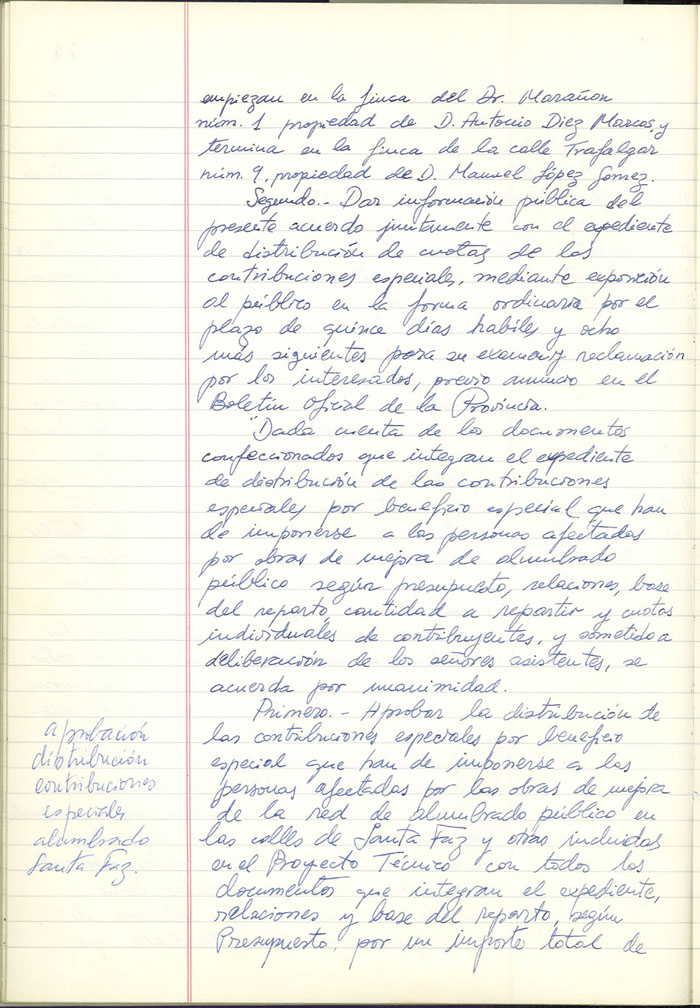 empiezan en la finca del Dr. Marañon
núm. 1 propiedad de D. Antonio Diez Marcos, y
termina en la finca de la calle Trafalgar
núm. 9, propiedad de D. Manuel López Gomez.
Segundo.- Dar información pública del
presente acuerdo juntamente con el expediente
de distribución de cuotas de las
contribuciones especiales, mediante exposición
al público en la forma ordinaria por el
plazo de quince días habiles y ocho
más siguientes para su examen y reclamación
por los interesados, previo anuncio en el
Boletin Oficial de la Provincia.
Dada cuenta de los documentos
confeccionados que integran el expediente
de distribución de las contribuciones
especiales por beneficio especial que han
de imponerse a las personas afectadas
por obras de mejora de alumbrado
público según presupuesto, relaciones, base
del reparto, cantidad a repartir y cuotas
individuales de contribuyentes, y sometido a
deliberación de los señores asistentes, se
acuerda por unanimidad.
Primero.- Aprobar la distribución de
las contribuciones especiales por beneficio
especial que han de imponerse a las
personas afectadas por las obras de mejora
de la red de alumbrado público en
las calles de Santa Faz y otras incluidas
en el Proyecto Técnico con todos los
documentos que integran el expediente,
relaciones y base del reparto, según
Presupuesto, por un importe total de
aprobación
distribución
contribuciones
especiales
alumbrado
Santa Faz.